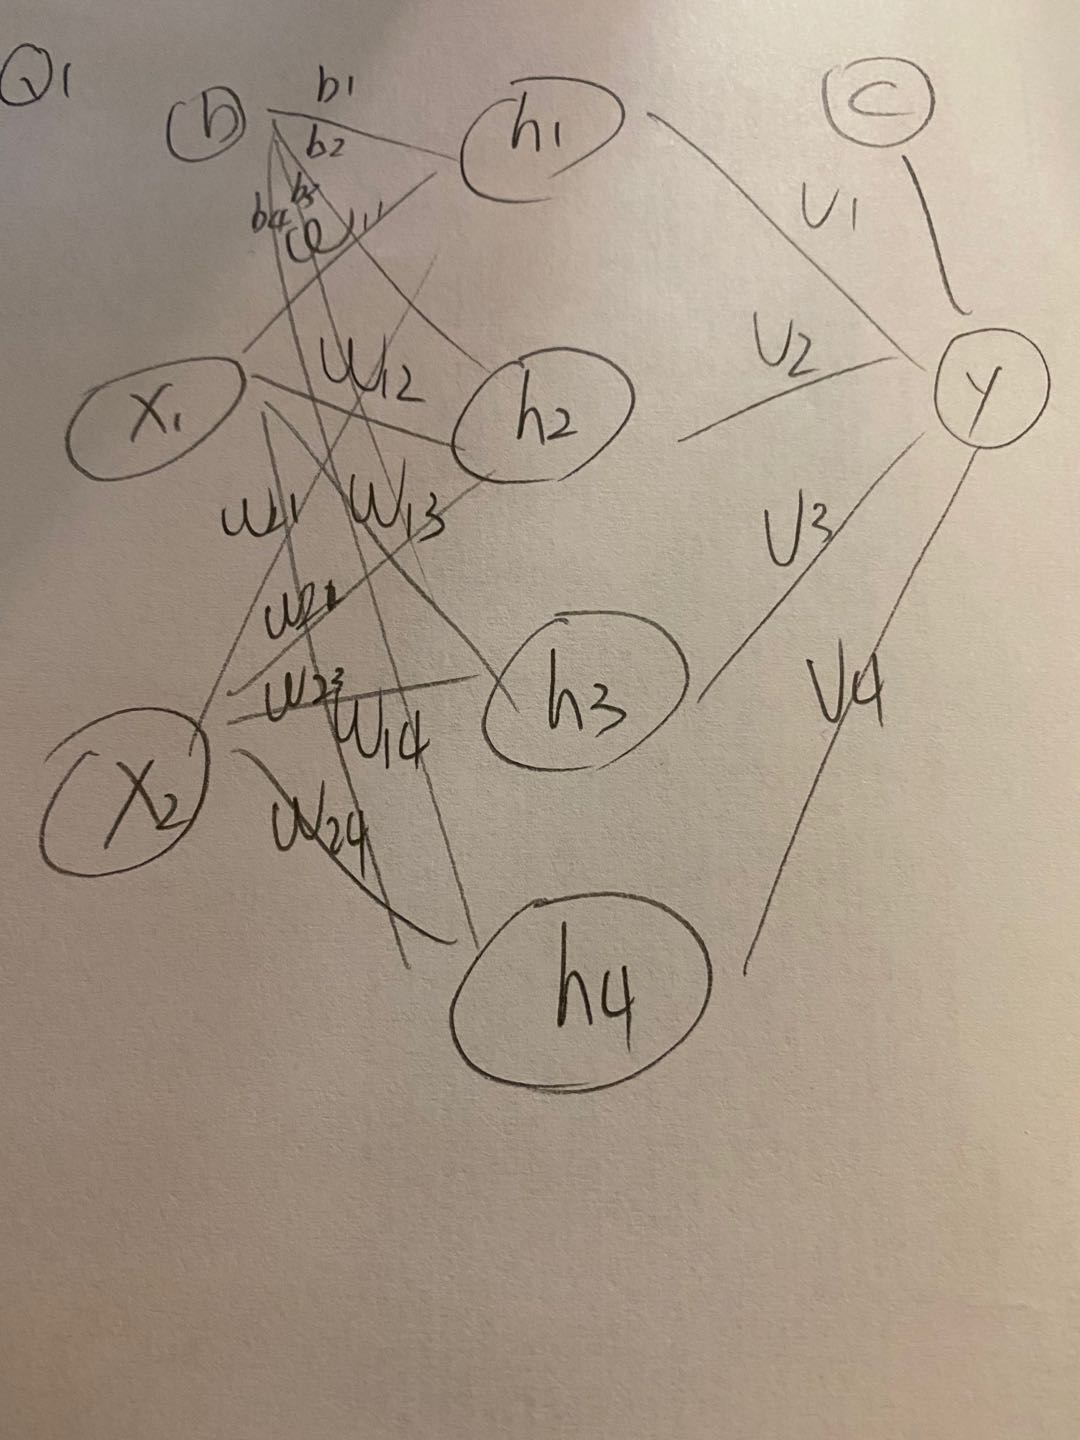 Q1
b
b1
h1
C
b2
b3
b4
W11
V1
X1
W12
h2
V2
y
W21
W13
V3
W23
h3
W14
V4
X2
W24
h4